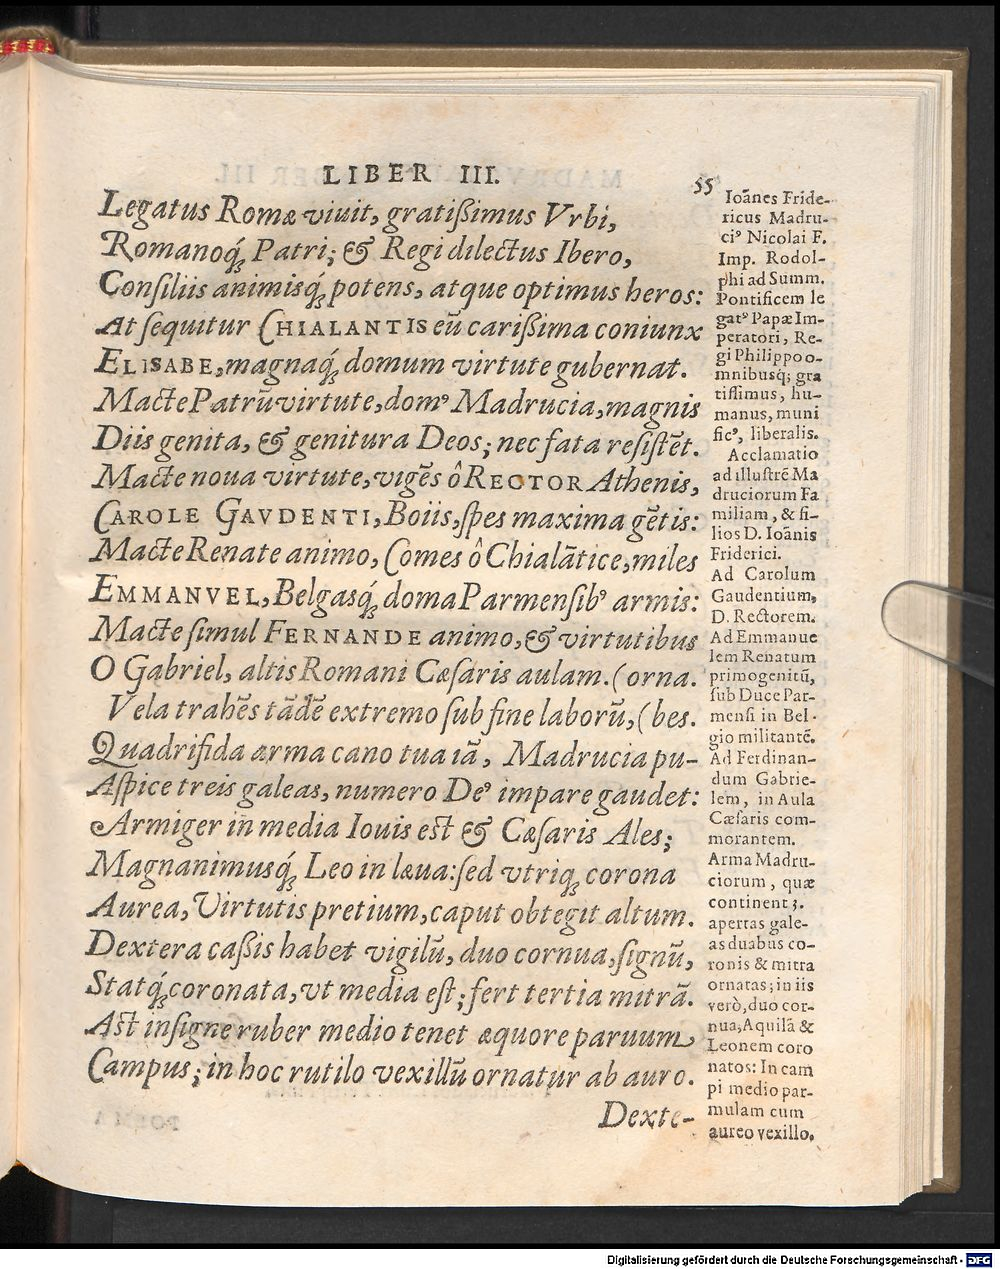 LIBER III. 55
Legatus Romæ viuit, gratißimus Vrbi,
Romanoq́; Patri; & Regi dilectus Ibero,
Conſiliis animisq́; potens, atque optimus heros:
At ſequitur CHIALANTIS eũ carißima coniunx
ELISABE, magnaq́; domum virtute gubernat.
Macte Patrũ virtute, domꝰ Madrucia, magnis
Diis genita, & genitura Deos; nec fata reſiſtẽt.
Macte noua virtute, vigẽs ô RECTOR Athenis,
CAROLE GAVDENTI, Boiis, ſpes maxima gẽtis:
Macte Renate animo, Comes ô Chialãtice, miles
EMMANVEL, Belgasq́; doma Parmenſibꝰ armis:
Macte ſimul FERNANDE animo, & virtutibus
O Gabriel, altis Romani Cæſaris aulam. (orna.
Vela trahẽs tãdẽ extremo ſub fine laborũ, (bes.
Quadrifida arma cano tua iã, Madrucia pu-
Aſpice treis galeas, numero Deꝰ impare gaudet:
Armiger in media Iouis eſt & Cæſaris Ales;
Magnanimusq́; Leo in læua: ſed vtriq; corona
Aurea, Virtutis pretium, caput obtegit altum.
Dextera caßis habet vigilũ, duo cornua, ſignũ,
Statq́; coronata, vt media eſt; fert tertia mitrã.
Aſt inſigne ruber medio tenet æquore paruum
Campus; in hoc rutilo vexillũ ornatur ab auro.
Dexte-
Ioãnes Fride-
ricus Madru-
ciꝰ Nicolai F.
Imp. Rodol-
phi ad Summ.
Pontificem le
gatꝰ Papæ Im-
peratori, Re-
gi Philippo o-
mnibusq́; gra
tiſſimus, hu-
manus, muni
ficꝰ, liberalis.
Acclamatio
ad illuſtrẽ Ma
druciorum Fa
miliam, & fi-
lios D. Ioãnis
Friderici.
Ad Carolum
Gaudentium,
D. Rectorem.
Ad Emmanue
lem Renatum
primogenitũ,
ſub Duce Par-
menſi in Bel-
gio militantẽ.
Ad Ferdinan-
dum Gabrie-
lem, in Aula
Cæſaris com-
morantem.
Arma Madru-
ciorum, quæ
continent 3.
apertas gale-
as duabus co-
ronis & mitra
ornatas; in iis
verò, duo cor-
nua, Aquilã &
Leonem coro
natos: In cam
pi medio par-
mulam cum
aureo vexillo.
Digitalisierung gefördert durch die Deutsche Forschungsgemeinschaft - DFG